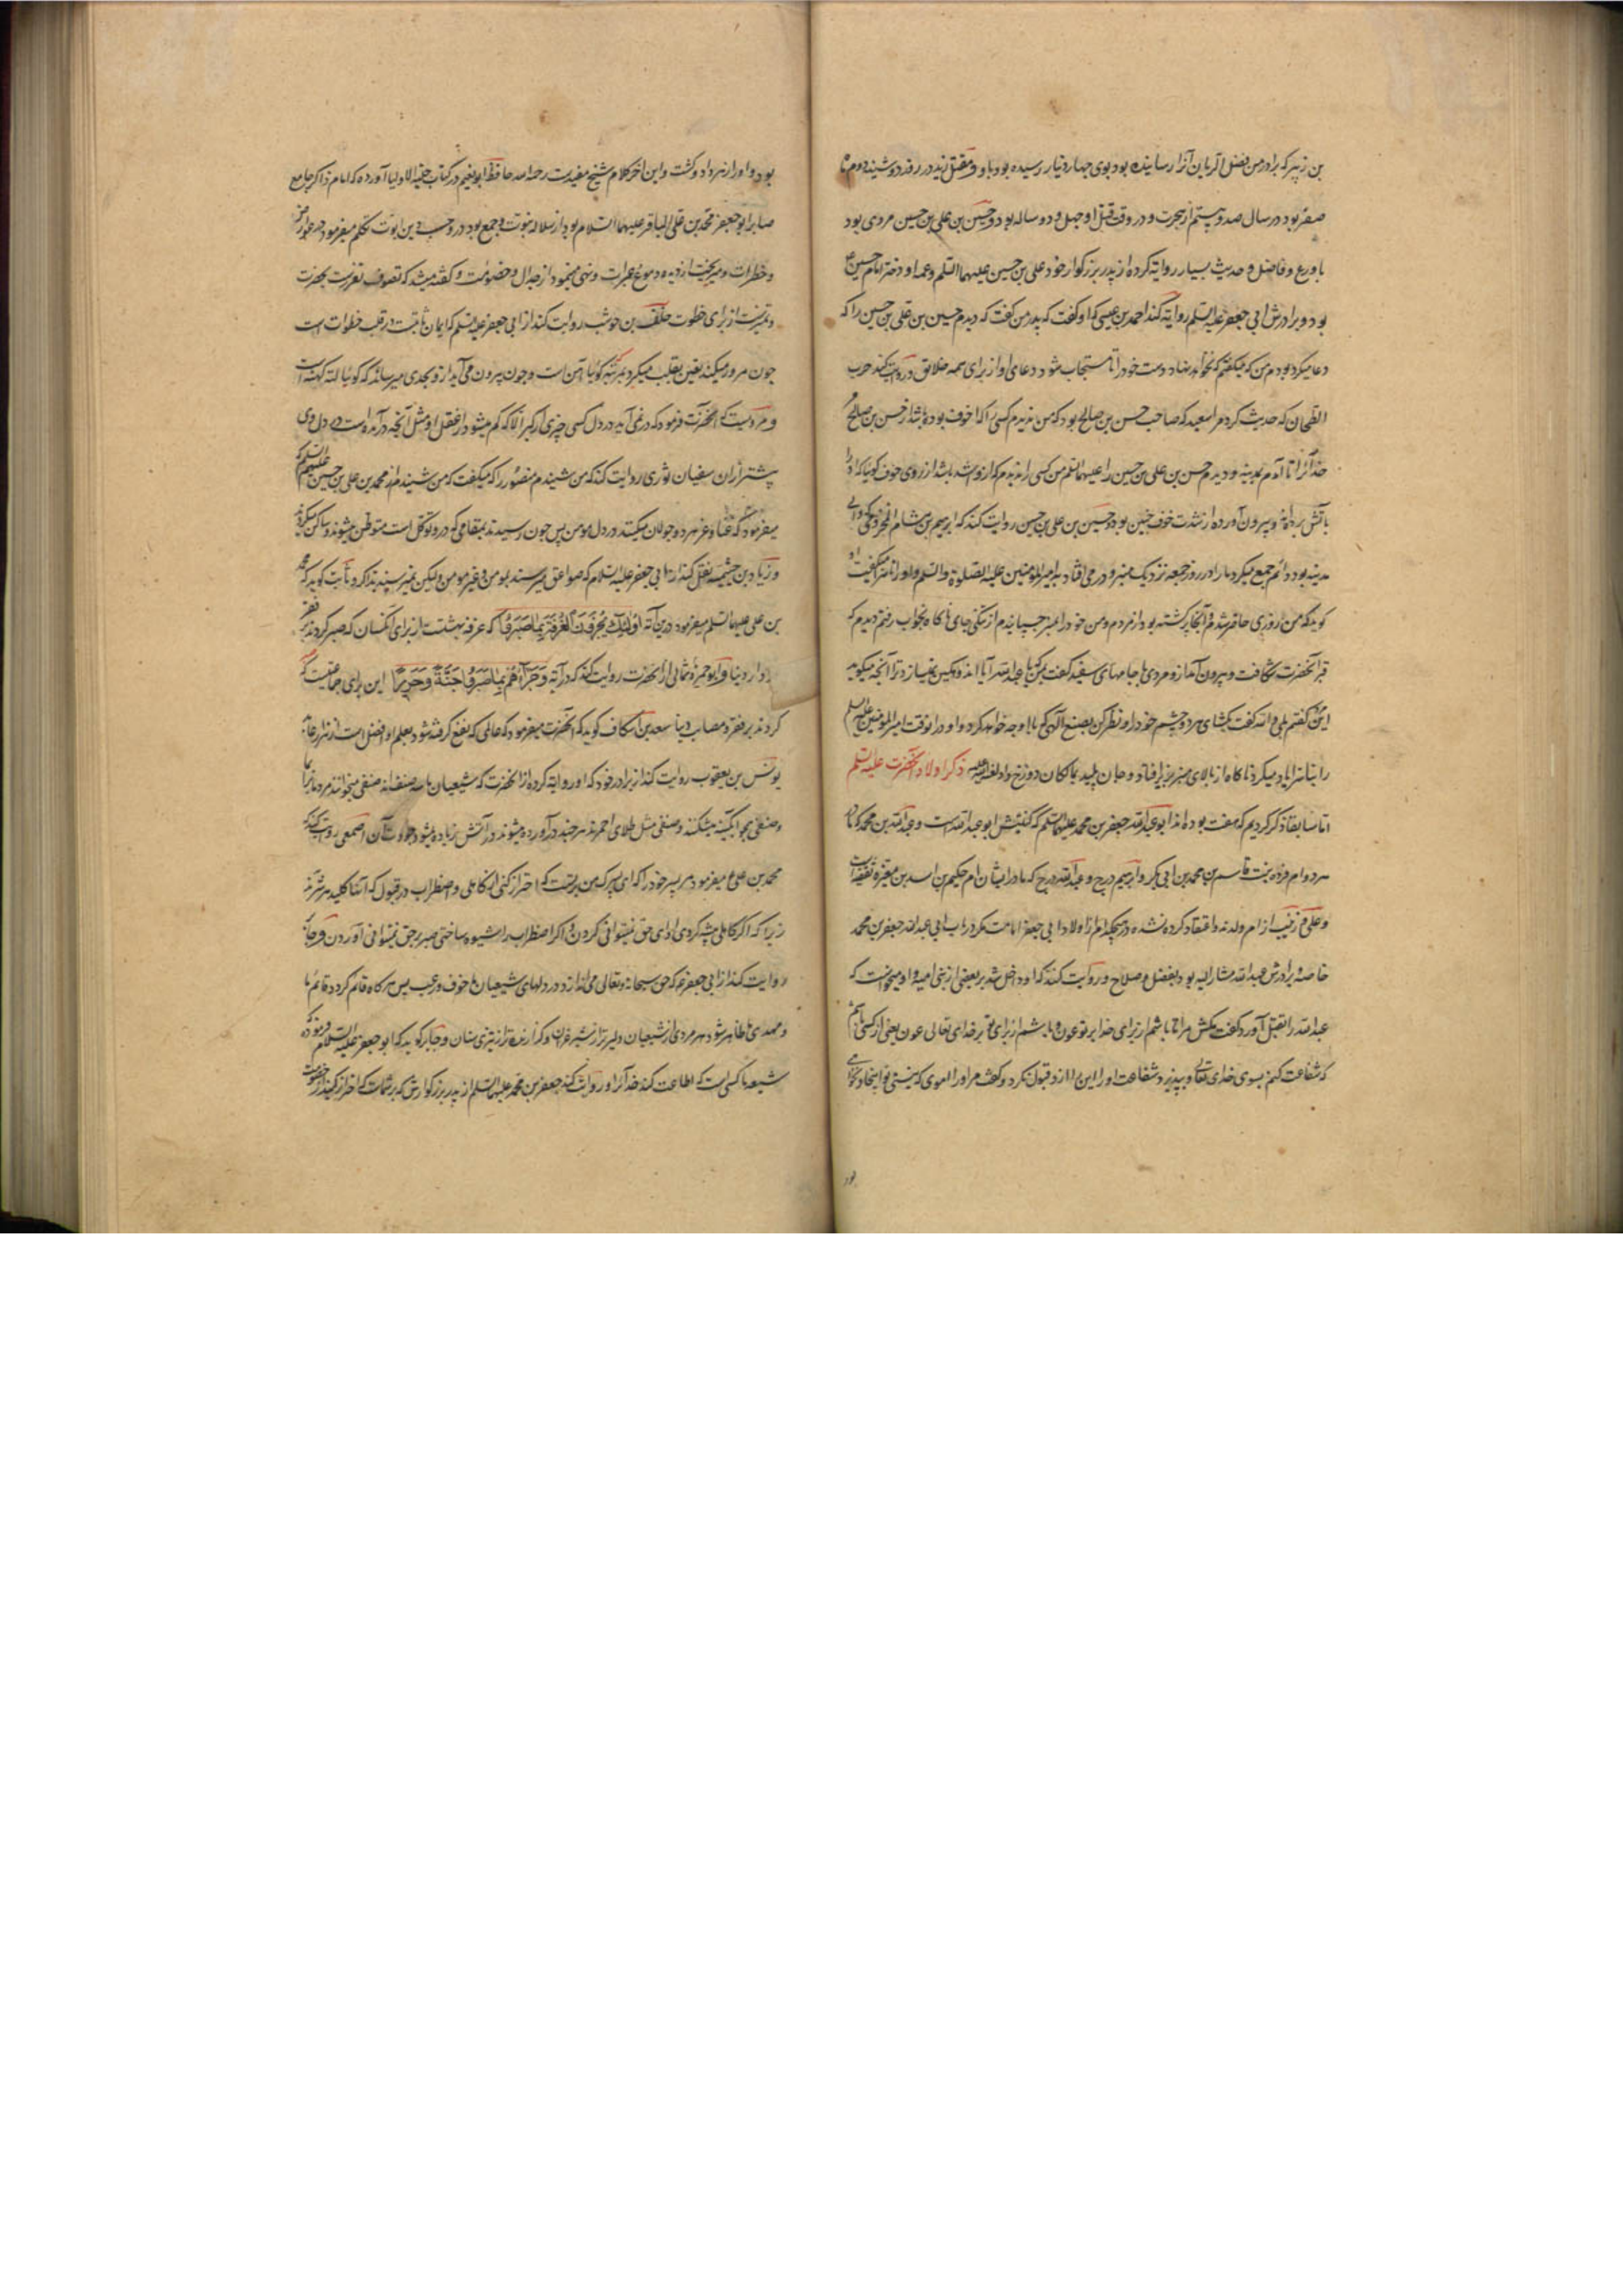 بن زبیر که برادر من فضل الریان آنرا رسانیده بود بوی چهار دینار رسیده بود با او و مقتل زید در روز دوشنبه دوم ماه
صفر بود در سال صد و بیستم از هجرت و در وقت قتل او چهل و دو ساله بود و حسین بن علی بن حسین مردی بود
با ورع و فاضل و حدیث بسیار روایة کرده از پدر بزرگوار خود علی بن حسین علیهما السلم و عمه او دختر امام حسین
بود و برادرش ابی جعفر علیه السلم روایة کند احمد بن عیسی که او گفت که پدر من گفت که دیدم حسین بن علی بن حسین را که
دعا میکرد بودم من که میگفتم که نخواهد نهاد دست خود را تا مستجاب شود دعای او از برای همه خلایق و روایت کند حرب
الطحان که حدیث کرد مرا سعید که صاحب حسن بن صالح بود که من ندیدم کسی را که اخوف بوده باشد از حسن بن صالح
خدا را تا آمدم بمدینه و دیدم حسین بن علی بن حسین را علیهما السلم من کسی را ندیدم که از و اشد باشد از روی خوف گویا که او را
بآتش برده اند و بیرون آورده از شدت خوف حسین بود و حسین بن علی بن حسین روایت کند که ابرهیم بن هشام المخزومی که والی
مدینه بود دائم جمع میکرد ما را در روز جمعه نزدیک منبر و در می افتاد به امیر المؤمنین علیه الصلوة والسلم و او را ناسزا میگفت او
گوید که من روزی حاضر شدم و آنجا پر گشته بود از مردم و من خود را بمنبر چسپانیدم از تنگی جای ناگاه بخواب رفتم دیدم که
قبر آنحضرت شکافت و بیرون آمد از و مردی با جامهای سفید گفت بمن که یا عبد الله آیا اندوهگین نمیسازد ترا آنچه میگوید
این گفتم بلی والله گفت بگشای هر دو چشم خود را و نظر کن بصنع الهی که با او چه خواهد کرد و او در انوقت امیر المؤمنین علیه السلم
را بناسزا یاد میکرد ناگاه از بالای منبر بزیر افتاد و جان پلید بمالکان دوزخ داد لعنه الله ذکر اولاد آنحضرت علیه السلم
اما سابقا ذکر کردیم که هفت بوده اند ابو عبد الله جعفر بن محمد علیهما السلم که کنیتش ابو عبد الله است و عبد الله بن محمد که مادر
هر دو ام فروه بنت قاسم بن محمد بن ابی بکر و ابرهیم درج و عبد الله درج که مادر ایشان ام حکیم بن اسد بن مغیره ثقفیه است
و علی و زینب از ام ولد نه و اعتقاد کرده نشده در هیچکدام از اولاد ابی جعفر امامت مگر در باب ابی عبد الله جعفر بن محمد
خاصه و برادرش عبد الله مشار الیه بود بفضل و صلاح و روایت کنند که او داخل شد بر بعضی از بنی امیه و او میخواست که
عبد الله را بقتل آورد گفت مکش مرا تا باشم از برای خدا بر تو عون و باشم از برای تو بر خدای تعالی عون یعنی از کسی باشم
که شفاعت کنم بسوی خدای تعالی و بپذیرد شفاعت او را این را از و قبول نکرد و گفت مر او را اموی که نیستی تو اینجا
بود و او را زهر داد و کشت و این آخر کلام شیخ مفیدست رحمه الله حافظ ابو نعیم در کتاب حلیة الاولیا آورده که امام ذاکر جامع
صابر ابو جعفر محمد بن علی الباقر علیهما السلام بود از سلاله نبوت و جمع بود در و حسب دین ابوت تکلم میفرمود در عوارض
و خطرات و میریخت از دیده دموع عبرات و نهی مینمود از جدال و خصومت و گفته میشد که تصوف تعززست بحضرت
و تمیزست از برای خطوت خلف بن حوشب روایت کند از ابی جعفر علیه السلم که ایمان ثابتست در قلب خطوات است
چون مرور میکند یقین بقلب میگردد بمرتبه گویا آهن است و چون بیرون می آید از و بحدی میرساند که گویا لته کهنه است
و مرویست که آنحضرت فرمود که در نمی آید در دل کسی چیزی از کبر الا که کم میشود از عقل او مثل آنچه در آمده است در دل وی
پیشتر از آن سفیان ثوری روایت کند که من شنیدم منصور را که میگفت که من شنیدم از محمد بن علی بن حسین علیهم السلم که
میفرمود که غنا و عز هر دو جولان میکنند در دل مومن پس چون رسیدند بمقامی که در و توکل است متوطن میشوند و ساکن میگردند
و زیاد بن خیثمه نقل کند از ابی جعفر علیه السلام که صواعق میرسند بمومن و غیر مومن و لیکن نمیرسند بذاکر و ثابت گوید که محمد
بن علی علیهما السلم میفرمود درین آیه اُولٰئِكَ یُجْزَوْنَ الْغُرْفَةَ بِمَا صَبَرُوا که غرفه بهشتست از برای آنکسان که صبر کردند بر فقر
در دار دنیا و ابو حمزه ثمالی از آنحضرت روایت کند که در آیه وَجَزَاهُمْ بِمَا صَبَرُوا جَنَّةً وَحَرِیرًا این برای جماعتیست که صبر
کردند بر فقر و مصائب دنیا سعد بن اسکاف گوید که آنحضرت میفرمود که عالمی که نفع گرفته شود بعلم او افضل است از هزار عابد
یونس بن یعقوب روایت کند از برادر خود که او روایة کرده از آنحضرت که شیعیان ما سه صنف اند صنفی میخوانند مردمان را بما
و صنفی چو آبگینه میشکنند و صنفی مثل طلای احمر اند هر چند در آورده میشوند در آتش زیاده میشود جودت آن اصمعی روایت کند که
محمد بن علی میفرمود مر پسر خود را که ای پسرک من بر تست که احتراز کنی از کاهلی و اضطراب در قبول که آنها کلید هر شر اند
زیرا که اگر کاهلی پیشه کردی ادای حق نمیتوانی کردن و اگر اضطراب را شیوه ساختی صبر بر حق نمیتوانی آوردن و جابر
روایت کند از ابی جعفر که حق سبحانه و تعالی می اندازد در دلهای شیعیان ما خوف و رعب پس هر گاه قائم گردد قائم ما
و مهدی ما ظاهر شود هر مردی از شیعیان دلیر تر از شیر غران و گذارنده تر از تیزی سنان و جابر گوید که ابو جعفر علیه السلام فرموده که
شیعه ما کسی است که اطاعت کند خدا را و روایت کند جعفر بن محمد علیهما السلم از پدر بزرگوارش که بر شماست که احتراز کنید از خصومت